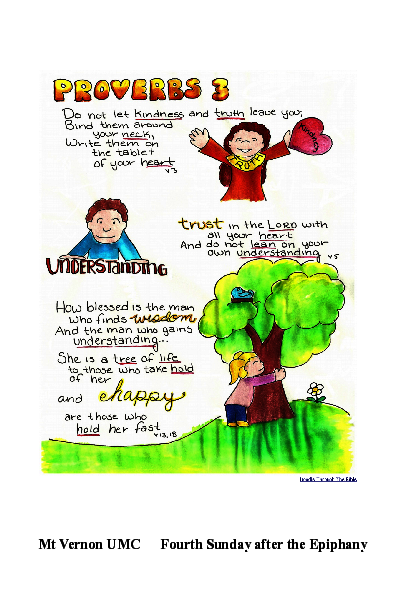 PROVERBS 3
Do not let kindness and truth leave you;
Bind them around
your neck,
Write them on
the tablet
of your heart
v3
TRUTH
UNDERSTANDING
trust in the LORD with
all your heart
And do not lean on your
own understanding v5
How blessed is the man
who finds wisdom
And the man who gains
understanding...
She is a tree of life
to those who take hold
of her
and happy
are those who
hold her fast
v13,18
Doodle Through The Bible
Mt Vernon UMC Fourth Sunday after the Epiphany